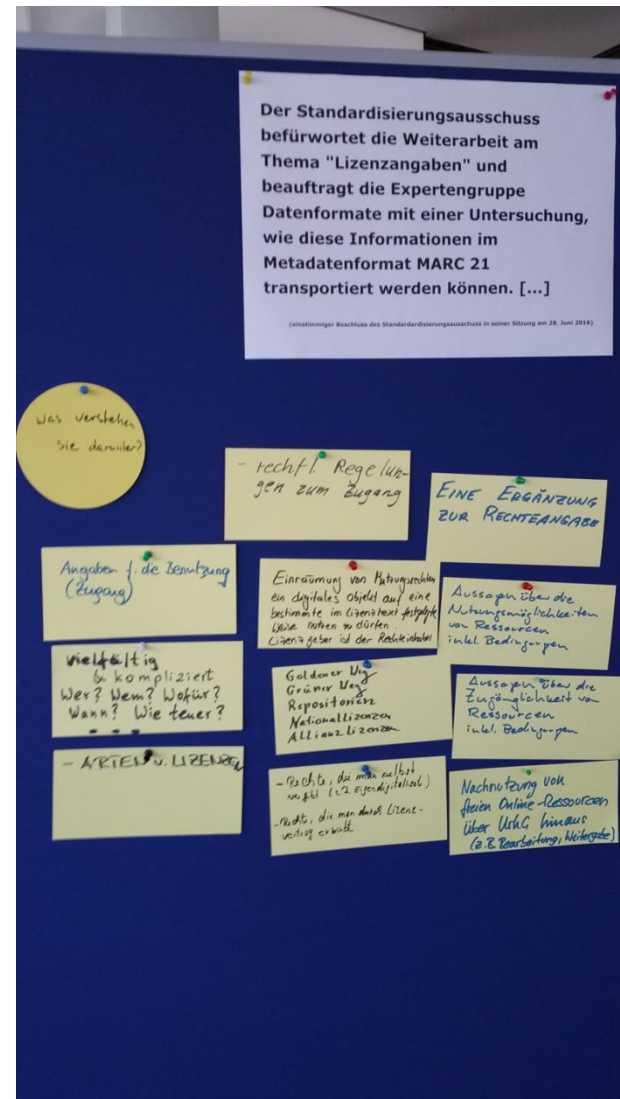 Der Standardisierungsausschuss
befürwortet die Weiterarbeit am
Thema "Lizenzangaben" und
beauftragt die Expertengruppe
Datenformate mit einer Untersuchung,
wie diese Informationen im
Metadatenformat MARC 21
transportiert werden können. [...]
(einstimmiger Beschluss des Standardardisierungsausschuss in seiner Sitzung am 28. Juni 2016)
Was verstehen
Sie darunter?
- rechtl. Regelun-
gen zum Zugang
EINE ERGÄNZUNG
ZUR RECHTEANGABE
Angaben f. die Benutzung
(Zugang)
Einräumung von Nutzungsrechten
ein digitales Objekt auf eine
bestimmte im Lizenztext festgelegte
Weise nutzen zu dürfen.
Lizenzgeber ist der Rechteinhaber
Aussagen über die
Nutzungsmöglichkeiten
von Ressourcen
inkl. Bedingungen
vielfältig
& kompliziert
Wer? Wem? Wofür?
Wann? Wie teuer?
- - -
Goldener Weg
Grüner Weg
Repositorien
Nationallizenzen
Allianzlizenzen
Aussagen über die
Zugänglichkeit von
Ressourcen
inkl. Bedingungen
- ARTEN v. LIZENZEN
- Rechte, die man selbst
(z.B. Eigendigitalisate)
- Rechte, die man durch Lizenz-
vertrag erwirbt
Nachnutzung von
freien Online-Ressourcen
über UrhG hinaus
(z.B. Bearbeitung, Weitergabe)